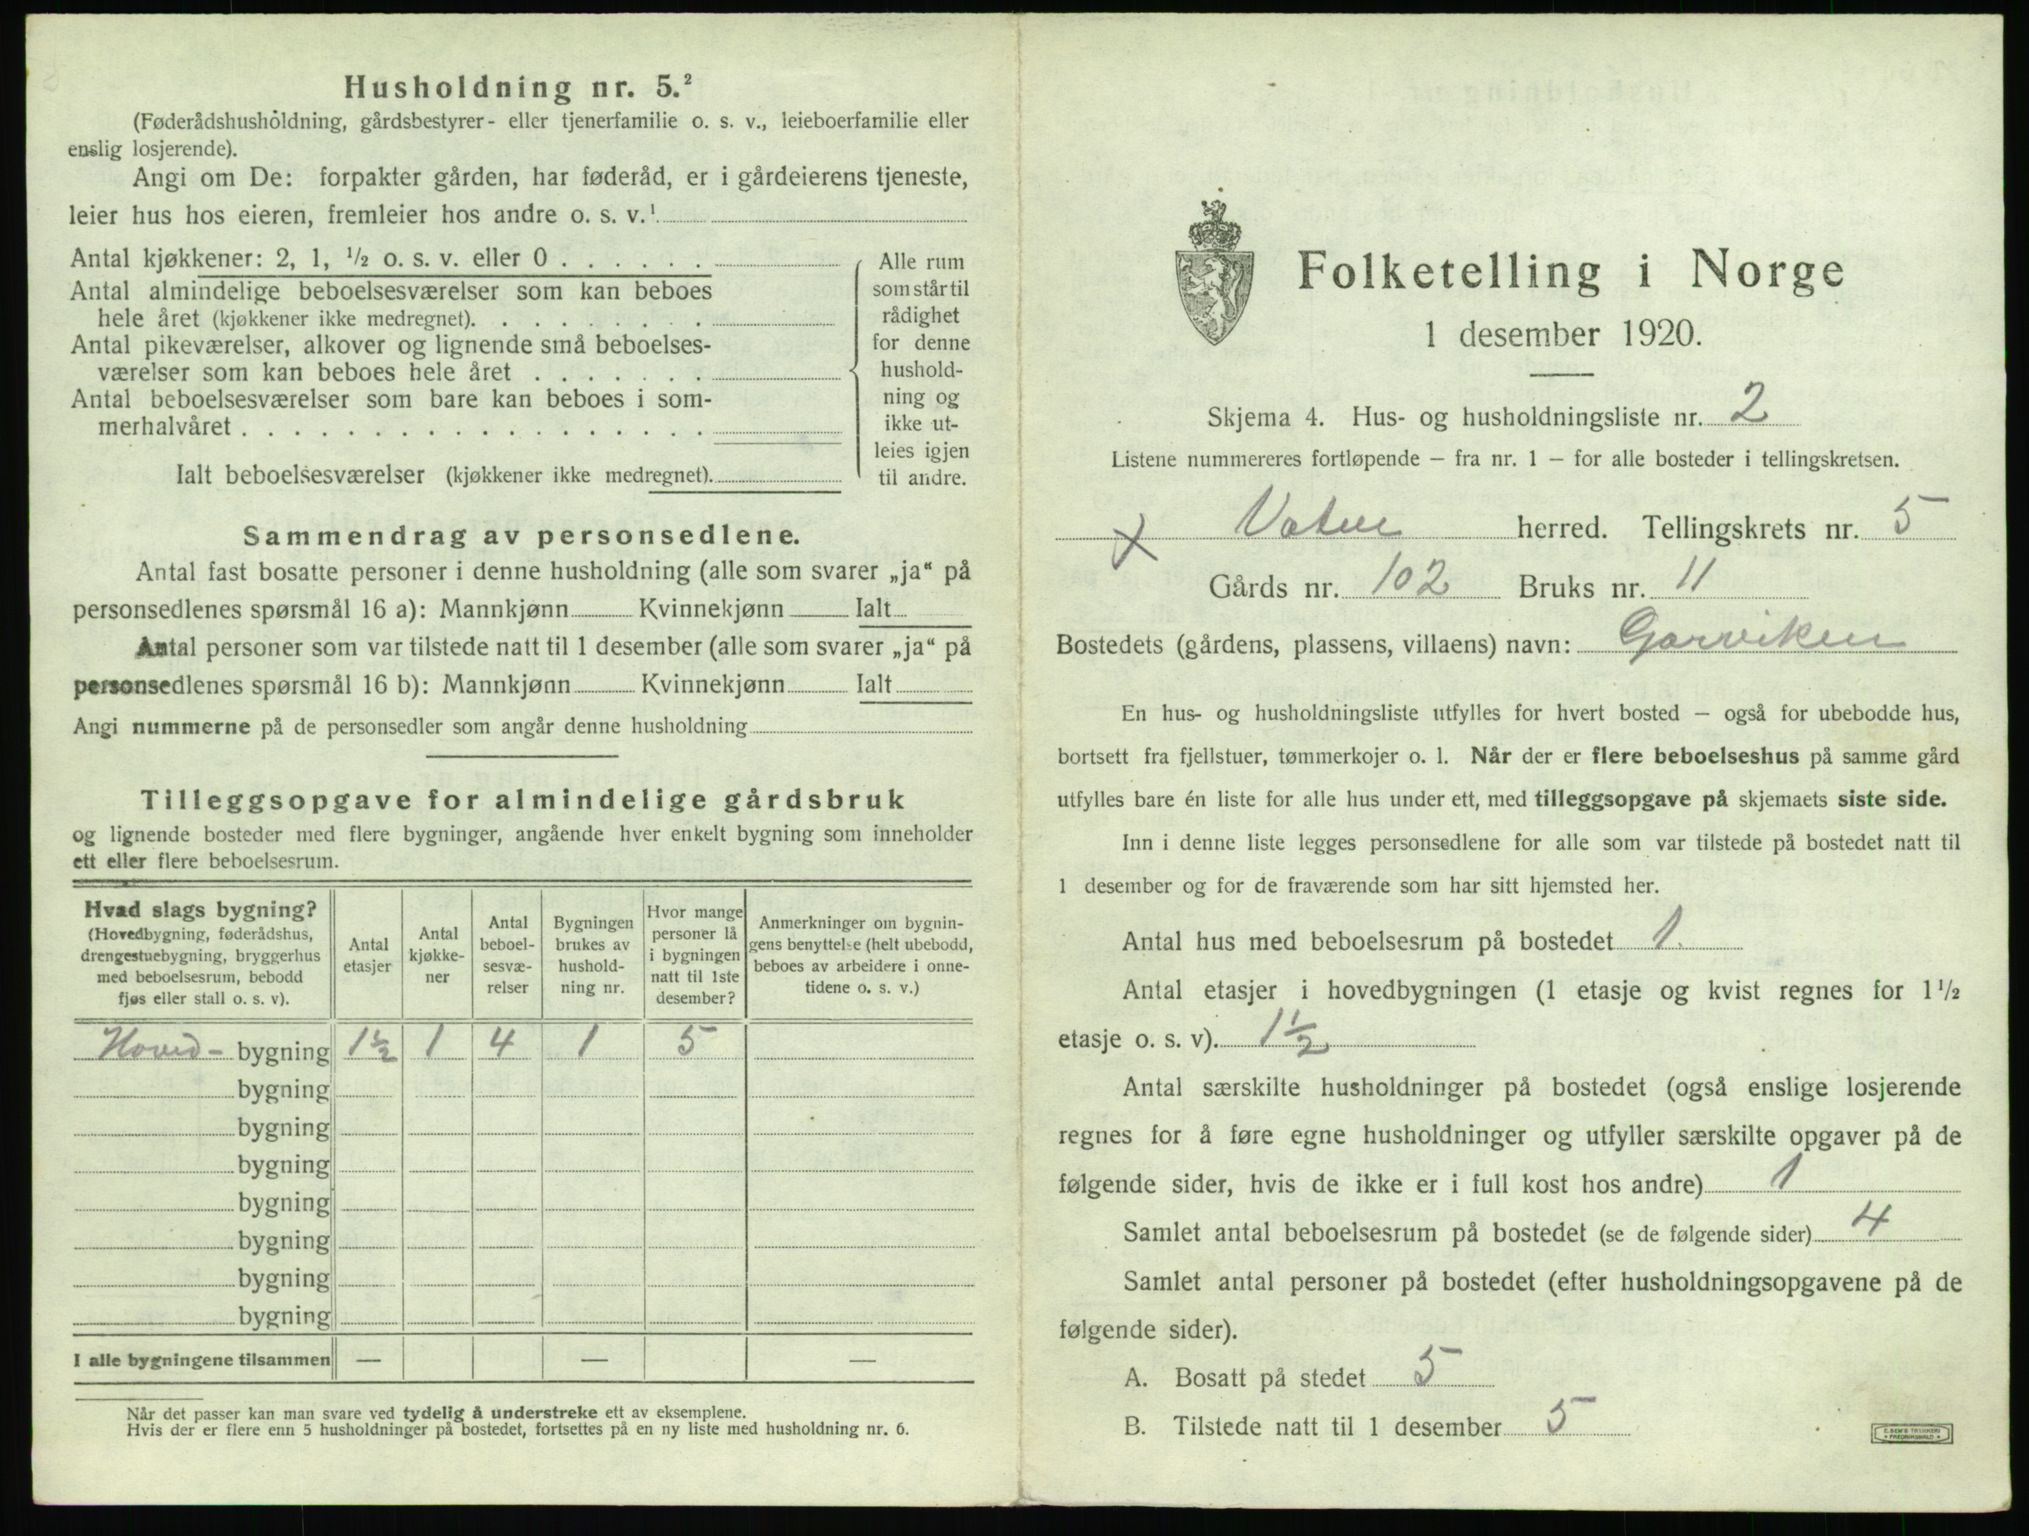 Husholdning nr. 5.²
(Føderådshusholdning, gårdsbestyrer- eller tjenerfamilie o. s. v., leieboerfamilie eller
enslig losjerende).
Angi om De: forpakter gården, har føderåd, er i gårdeierens tjeneste,
leier hus hos eieren, fremleier hos andre o. s. v.¹
Antal kjøkkener: 2, 1, ½ o. s. v. eller 0 . . . . . .
Antal almindelige beboelsesværelser som kan beboes
hele året (kjøkkener ikke medregnet). . . . . . . . .
Antal pikeværelser, alkover og lignende små beboelses-
værelser som kan beboes hele året . . . . . . .
Antal beboelsesværelser som bare kan beboes i som-
merhalvåret . . . . . . . . . . . . . . . . . .
Ialt beboelsesværelser (kjøkkener ikke medregnet).
Alle rum
som står til
rådighet
for denne
hushold-
ning og
ikke ut-
leies igjen
til andre.
Sammendrag av personsedlene.
Antal fast bosatte personer i denne husholdning (alle som svarer „ja“ på
personsedlenes spørsmål 16 a): Mannkjønn Kvinnekjønn Ialt
Antal personer som var tilstede natt til 1 desember (alle som svarer „ja“ på
personsedlenes spørsmål 16 b): Mannkjønn Kvinnekjønn Ialt
Angi nummerne på de personsedler som angår denne husholdning
Tilleggsopgave for almindelige gårdsbruk
og lignende bosteder med flere bygninger, angående hver enkelt bygning som inneholder
ett eller flere beboelsesrum.
Hvad slags bygning?
(Hovedbygning, føderådshus,
drengestuebygning, bryggerhus
med beboelsesrum, bebodd
fjøs eller stall o. s. v).
Antal
etasjer
Antal
kjøkke-
ner
Antal
beboel-
sesvæ-
relser
Bygningen
brukes av
hushold-
ning nr.
Hvor mange
personer lå
i bygningen
natt til 1ste
desember?
Anmerkninger om bygnin-
gens benyttelse (helt ubebodd,
beboes av arbeidere i onne-
tidene o. s. v.)
Hoved- bygning 1½ 1 4 1 5
bygning
bygning
bygning
bygning
bygning
bygning
bygning
I alle bygningene tilsammen — — —
Når det passer kan man svare ved tydelig å understreke ett av eksemplene.
Hvis der er flere enn 5 husholdninger på bostedet, fortsettes på en ny liste med husholdning nr. 6.
Folketelling i Norge
1 desember 1920.
Skjema 4. Hus- og husholdningsliste nr. 2
Listene nummereres fortløpende — fra nr. 1 — for alle bosteder i tellingskretsen.
x Vatne herred. Tellingskrets nr. 5
Gårds nr. 102 Bruks nr. 11
Bostedets (gårdens, plassens, villaens) navn: Gorviken
En hus- og husholdningsliste utfylles for hvert bosted — også for ubebodde hus,
bortsett fra fjellstuer, tømmerkojer o. l. Når der er flere beboelseshus på samme gård
utfylles bare én liste for alle hus under ett, med tilleggsopgave på skjemaets siste side.
Inn i denne liste legges personsedlene for alle som var tilstede på bostedet natt til
1 desember og for de fraværende som har sitt hjemsted her.
Antal hus med beboelsesrum på bostedet 1.
Antal etasjer i hovedbygningen (1 etasje og kvist regnes for 1½
etasje o. s. v). 1½
Antal særskilte husholdninger på bostedet (også enslige losjerende
regnes for å føre egne husholdninger og utfyller særskilte opgaver på de
følgende sider, hvis de ikke er i full kost hos andre) 1
Samlet antal beboelsesrum på bostedet (se de følgende sider) 4
Samlet antal personer på bostedet (efter husholdningsopgavene på de
følgende sider).
A. Bosatt på stedet 5
B. Tilstede natt til 1 desember 5